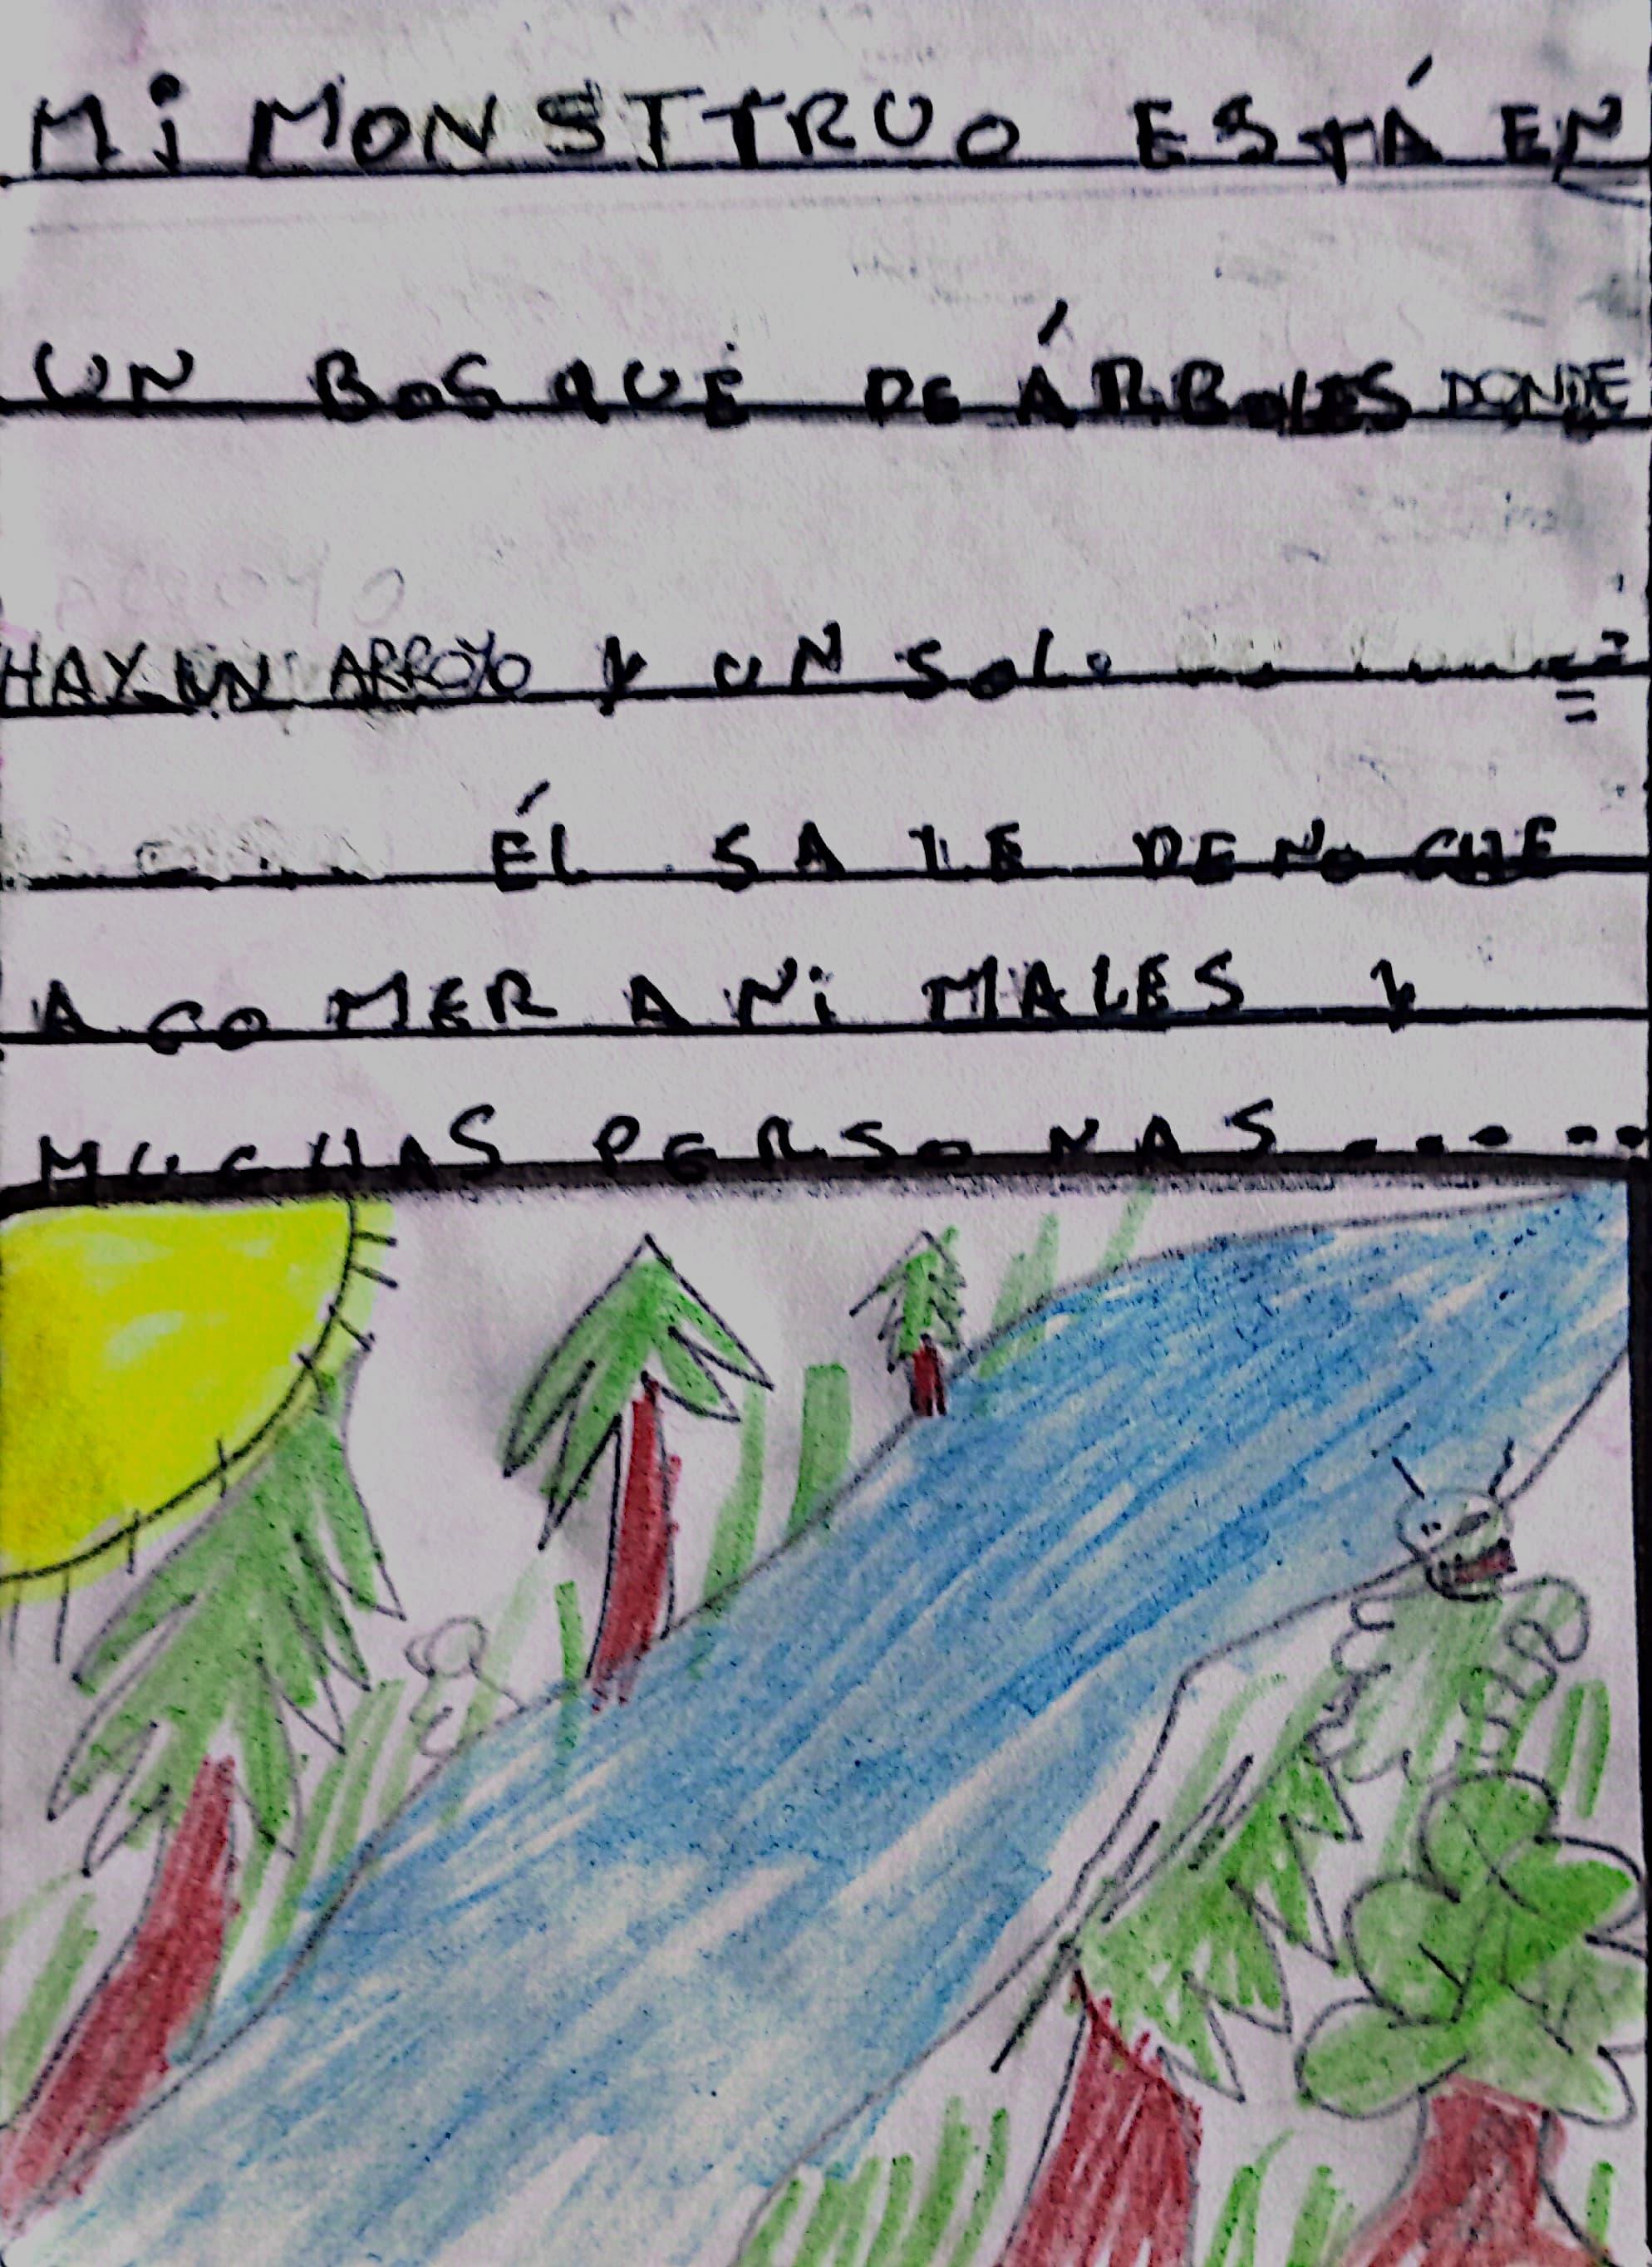 Mi MONSTTRUO ESTÁ EN
UN BOSQUE DE ÁRBOLES DONDE
HAY UN ARROYO Y UN SOL.
ÉL SALE DE NOCHE
A COMER ANiMALES Y
MUCHAS PERSONAS......